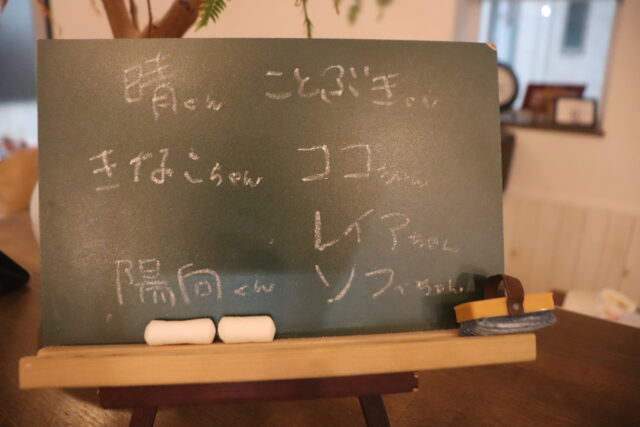 晴くん ことぶきくん
きなこちゃん ココちゃん
レイアちゃん
陽向くん ソフィちゃん